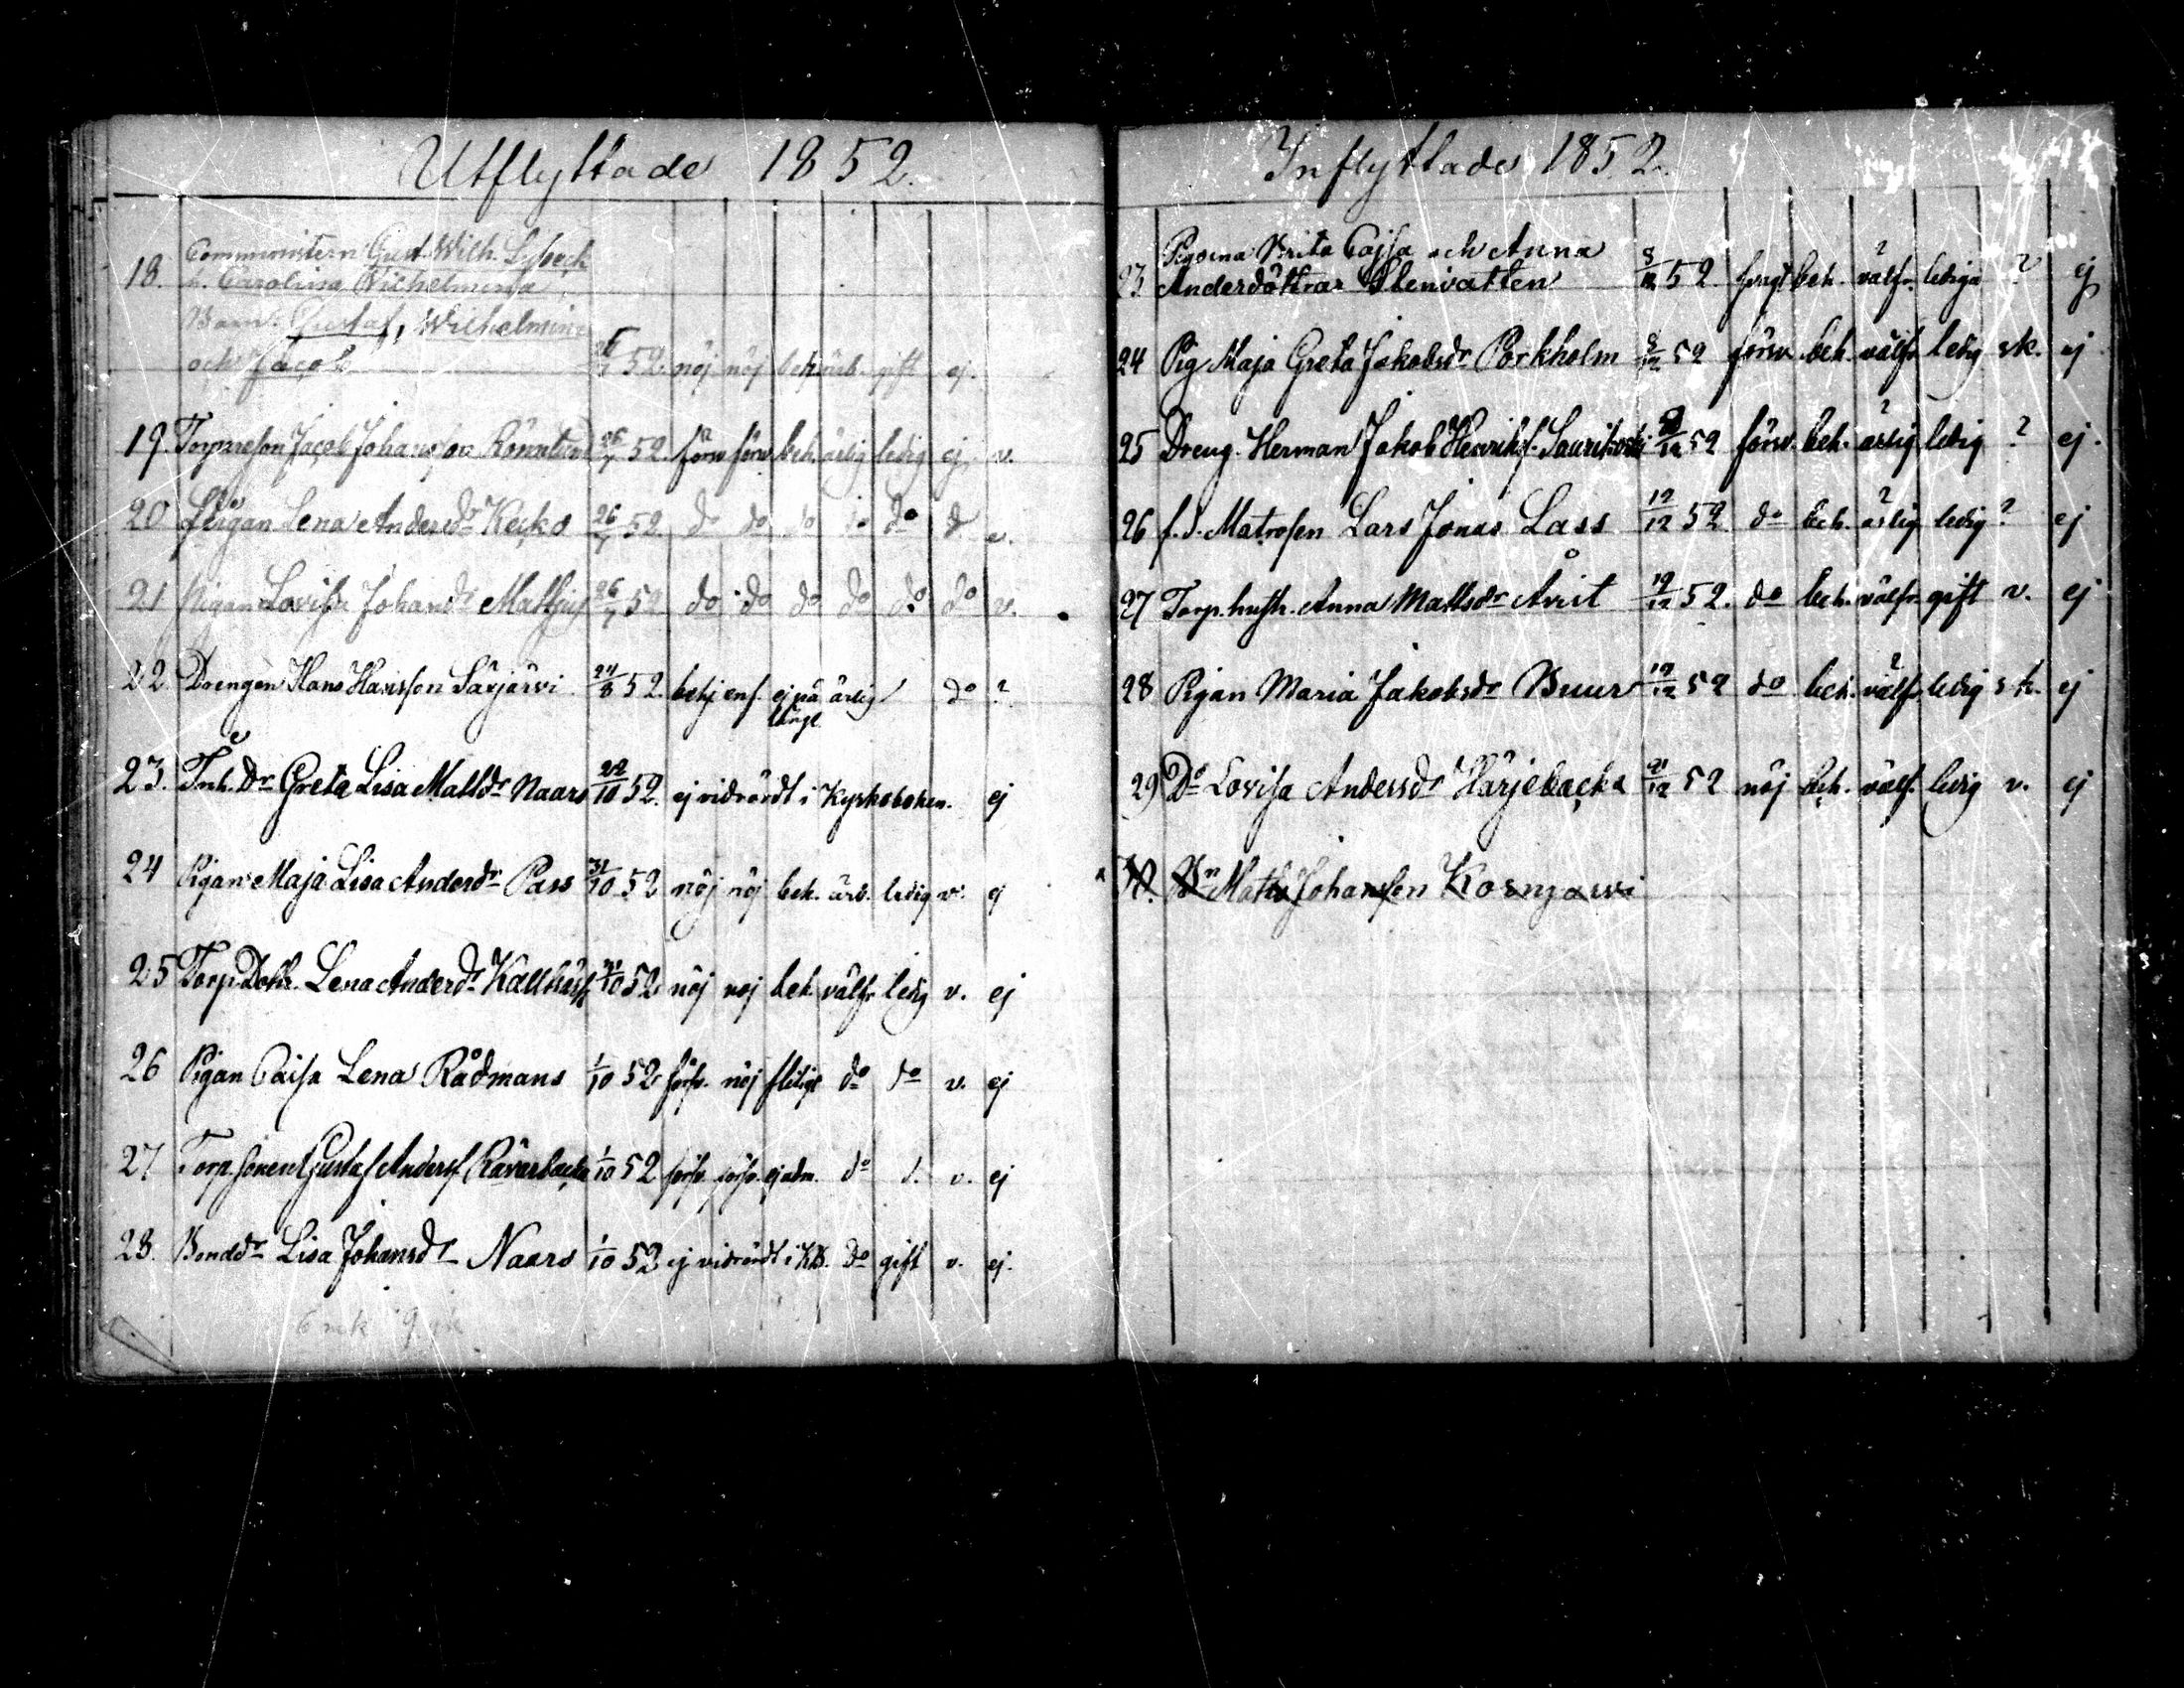 Utflyttade 1852.
18. Comministern Gust. Wilh. Lybeck
h. Carolina Wilhelmina
Barn: Gustaf, Wilhelmina
och Jacob 52. nöj nöj beh. gift ej.
19. Jacob Johansson 26/7 52. försv försv beh. ärlig ledig ej v.
20 Pigan Lena Andersdr Kecko 26/7 52 do do do do do do v.
21 Pigan Lovisa Johansdr 26/7 52 do do do do do do v.
22. Drengen Hans Hansson Särjärvi 24/8 52. ej på ärlig do ?
länge
23. Inh. Dr Greta Lisa Mattsdr Naars 22/10 52. ej vidrördt i Kyrkoboken. ej
24 Pigan Maja Lisa Andersdr Pass 31/10 52 nöj nöj beh. ärb. ledig v. ej
25 Torp. Dottr. Lena Andersdr 52 nöj nöj beh välfr ledig v. ej
26 Pigan Caisa Lena Rådmans 1/10 52 försv. nöj flitigt do do v. ej
27 Torp. sonen Gustaf Anderss. 1/10 52 försv. försv. ej adm. do d. v. ej
28. Bonddr Lisa Johansdr Naars 1/10 52 ej vidrördt i KB. do gift v. ej.
6 mk 9 qk
Inflyttade 1852.
Pigorna Brita Cajsa och Anna
23 Andersdöttrar Stenvatten 8/12 52. beh. välfr. lediga ? ej
24 Pig Maja Greta Jakobsdr Porkholm 8/12 52 försv. beh. välfr ledig sk. ej
25 Dreng. Herman Jakob Henrikss. Saurikoski 52 försv. beh. ärlig ledig ? ej.
26 f.d. Matrosen Lars Jonas Lass 12/12 52 do beh. ärlig ledig ? ej
27 Torp. hustr. Anna Mattsdr Åvit 19/12 52. do beh. välfr. gift v. ej
28 Pigan Maria Jakobsdr Buur 19/12 52 do beh. välfr ledig sk. ej
29 Do Lovisa Andersdr Härjebacka 21/12 52 nöj beh. välf. ledig v. ej
Matts Johansson Kosnjärvi